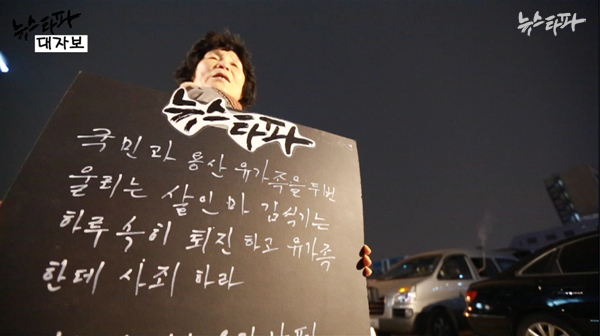 뉴스타파
대자보
뉴스타파
뉴스타파
국민과 용산 유가족을 두번
울리는 살인마 김석기는
하루 속히 퇴진 하고 유가족
한테 사죄 하라